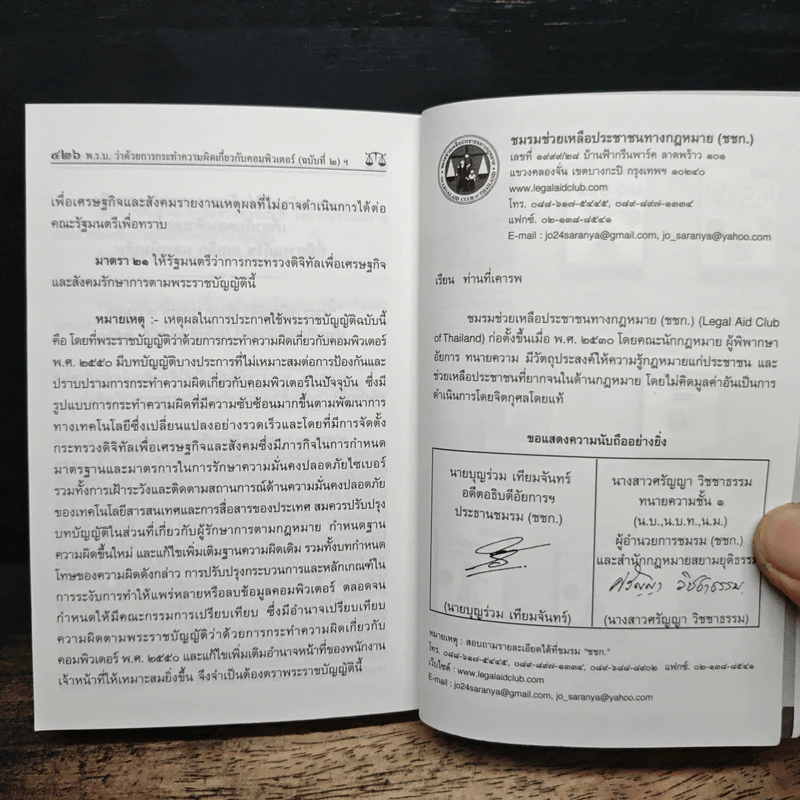 ๔๒๖ พ.ร.บ. ว่าด้วยการกระทำความผิดเกี่ยวกับคอมพิวเตอร์ (ฉบับที่ ๒) ฯ
เพื่อเศรษฐกิจและสังคมรายงานเหตุผลที่ไม่อาจดำเนินการได้ต่อ
คณะรัฐมนตรีเพื่อทราบ
มาตรา ๒๑ ให้รัฐมนตรีว่าการกระทรวงดิจิทัลเพื่อเศรษฐกิจ
และสังคมรักษาการตามพระราชบัญญัตินี้
หมายเหตุ :- เหตุผลในการประกาศใช้พระราชบัญญัติฉบับนี้
คือ โดยที่พระราชบัญญัติว่าด้วยการกระทำความผิดเกี่ยวกับคอมพิวเตอร์
พ.ศ. ๒๕๕๐ มีบทบัญญัติบางประการที่ไม่เหมาะสมต่อการป้องกันและ
ปราบปรามการกระทำความผิดเกี่ยวกับคอมพิวเตอร์ในปัจจุบัน ซึ่งมี
รูปแบบการกระทำความผิดที่มีความซับซ้อนมากขึ้นตามพัฒนาการ
ทางเทคโนโลยีซึ่งเปลี่ยนแปลงอย่างรวดเร็วและโดยที่มีการจัดตั้ง
กระทรวงดิจิทัลเพื่อเศรษฐกิจและสังคมซึ่งมีภารกิจในการกำหนด
มาตรฐานและมาตรการในการรักษาความมั่นคงปลอดภัยไซเบอร์
รวมทั้งการเฝ้าระวังและติดตามสถานการณ์ด้านความมั่นคงปลอดภัย
ของเทคโนโลยีสารสนเทศและการสื่อสารของประเทศ สมควรปรับปรุง
บทบัญญัติในส่วนที่เกี่ยวกับผู้รักษาการตามกฎหมาย กำหนดฐาน
ความผิดขึ้นใหม่ และแก้ไขเพิ่มเติมฐานความผิดเดิม รวมทั้งบทกำหนด
โทษของความผิดดังกล่าว การปรับปรุงกระบวนการและหลักเกณฑ์ใน
การระงับการทำให้แพร่หลายหรือลบข้อมูลคอมพิวเตอร์ ตลอดจน
กำหนดให้มีคณะกรรมการเปรียบเทียบ ซึ่งมีอำนาจเปรียบเทียบ
ความผิดตามพระราชบัญญัติว่าด้วยการกระทำความผิดเกี่ยวกับ
คอมพิวเตอร์ พ.ศ. ๒๕๕๐ และแก้ไขเพิ่มเติมอำนาจหน้าที่ของพนักงาน
เจ้าหน้าที่ให้เหมาะสมยิ่งขึ้น จึงจำเป็นต้องตราพระราชบัญญัตินี้
ชมรมช่วยเหลือประชาชนทางกฎหมาย (ชชก.)
เลขที่ ๑๙๙๙/๒๘ บ้านฟ้ากรีนพาร์ค ลาดพร้าว ๑๐๑
แขวงคลองจั่น เขตบางกะปิ กรุงเทพฯ ๑๐๒๔๐
www.legalaidclub.com
โทร. ๐๘๘-๖๑๗-๕๔๔๕, ๐๘๙-๘๙๗-๑๓๓๔
แฟกซ์. ๐๒-๑๓๘-๘๕๔๑
E-mail : jo24saranya@gmail.com, jo_saranya@yahoo.com
LEGALAID CLUB OF THAILAND
เรียน ท่านที่เคารพ
ชมรมช่วยเหลือประชาชนทางกฎหมาย (ชชก.) (Legal Aid Club
of Thailand) ก่อตั้งขึ้นเมื่อ พ.ศ. ๒๕๓๐ โดยคณะนักกฎหมาย ผู้พิพากษา
อัยการ ทนายความ มีวัตถุประสงค์ให้ความรู้กฎหมายแก่ประชาชน และ
ช่วยเหลือประชาชนที่ยากจนในด้านกฎหมาย โดยไม่คิดมูลค่าอันเป็นการ
ดำเนินการโดยจิตกุศลโดยแท้
ขอแสดงความนับถืออย่างยิ่ง
นายบุญร่วม เทียมจันทร์
อดีตอธิบดีอัยการฯ
ประธานชมรม (ชชก.)
(นายบุญร่วม เทียมจันทร์)
นางสาวศรัญญา วิชชาธรรม
ทนายความชั้น ๑
(น.บ.,น.บ.ท.,น.ม.)
ผู้อำนวยการชมรม (ชชก.)
และสำนักกฎหมายสยามยุติธรรม
ศรัญญา วิชชาธรรม
(นางสาวศรัญญา วิชชาธรรม)
หมายเหตุ : สอบถามรายละเอียดได้ที่ชมรม "ชชก."
โทร. ๐๘๘-๖๑๗-๕๔๔๕, ๐๘๙-๘๙๗-๑๓๓๔, ๐๘๙-๖๘๘-๘๙๐๒ แฟกซ์. ๐๒-๑๓๘-๘๕๔๑
เว็บไซต์ : www.legalaidclub.com
E-mail : jo24saranya@gmail.com, jo_saranya@yahoo.com